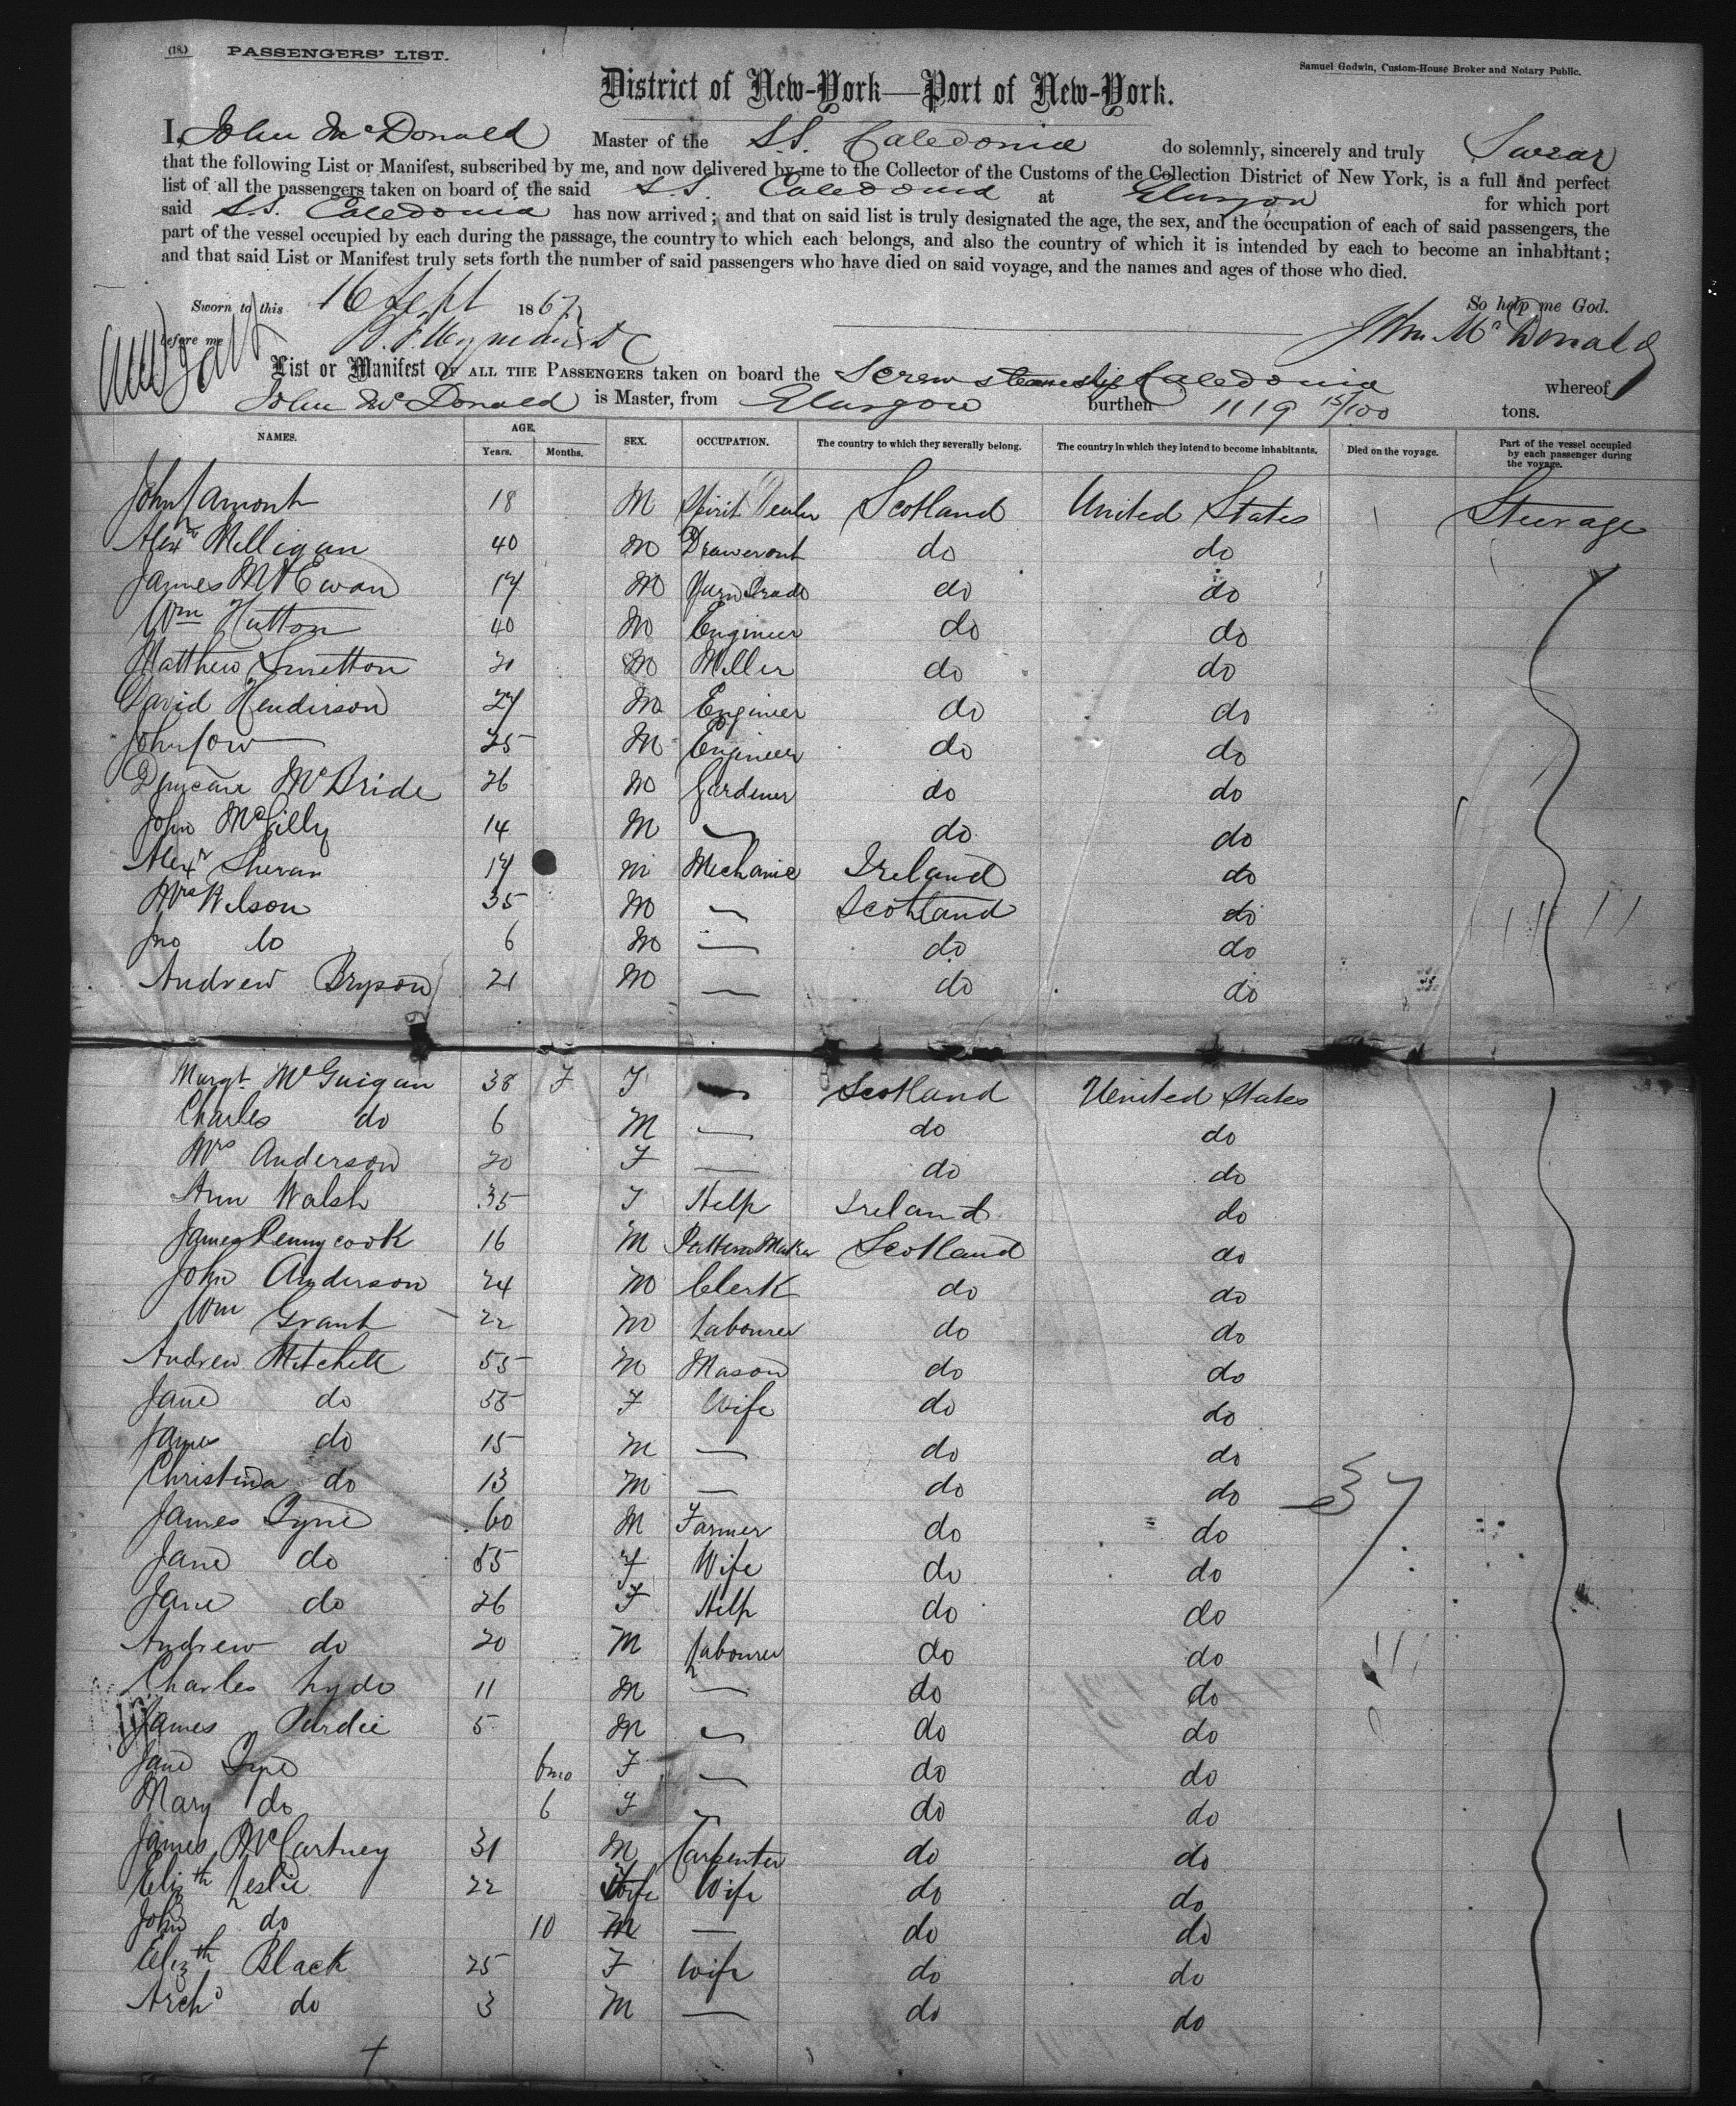 (18.) PASSENGERS' LIST.
Samuel Godwin, Custom-House Broker and Notary Public.
District of New-York—Port of New-York.
I, John McDonald Master of the S.S. Caledonia do solemnly, sincerely and truly Swear
that the following List or Manifest, subscribed by me, and now delivered by me to the Collector of the Customs of the Collection District of New York, is a full and perfect
list of all the passengers taken on board of the said S.S. Caledonia at Glasgow for which port
said S.S. Caledonia has now arrived; and that on said list is truly designated the age, the sex, and the occupation of each of said passengers, the
part of the vessel occupied by each during the passage, the country to which each belongs, and also the country of which it is intended by each to become an inhabitant;
and that said List or Manifest truly sets forth the number of said passengers who have died on said voyage, and the names and ages of those who died.
Sworn to this 16 Sept 1867 So help me God.
before me John McDonald
List or Manifest OF ALL THE PASSENGERS taken on board the Screw steamship Caledonia whereof
John McDonald is Master, from Glasgow burthen 1119 15/100 tons.
NAMES. AGE. Years. Months. SEX. OCCUPATION. The country to which they severally belong. The country in which they intend to become inhabitants. Died on the voyage. Part of the vessel occupied by each passenger during the voyage.
John Lamont 18 M Spirit Dealer Scotland United States Steerage
Alexr Milligan 40 M do do
James McEwan 17 M Yarn Trade do do
Wm Hutton 40 M Engineer do do
Matthew Smetton 20 M Miller do do
David Henderson 27 M Engineer do do
John Low 25 M Engineer do do
McBride 26 M Gardener do do
John McGilly 14 M — do do
Alexr Sheran 17 M Mechanic Ireland do
Mrs Wilson 35 M — Scotland do
Jno do 6 M — do do
Andrew Bryson 21 M — do do
Margt McGuigan 38 F — Scotland United States
Charles do 6 M — do do
Mrs Anderson 20 F — do do
Ann Walsh 35 F Help Ireland do
James Pennycook 16 M Pattern Maker Scotland do
John Anderson 24 M Clerk do do
Wm Grant 22 M Labourer do do
Andrew Mitchell 55 M Mason do do
Jane do 55 F Wife do do
James do 15 M — do do
Christina do 13 M — do do
37
James Tyrie 60 M Farmer do do
Jane do 55 F Wife do do
Jane do 26 F Help do do
Andrew do 20 M Labourer do do
Charles Lyde 11 M — do do
James Purdie 5 M — do do
Jane 6mo F — do do
Mary do 6 F — do do
James McCartney 31 M Carpenter do do
Elizth Leslie 22 Wife Wife do do
John do 10 M — do do
Elizth Black 25 F Wife do do
Archd do 3 M — do do